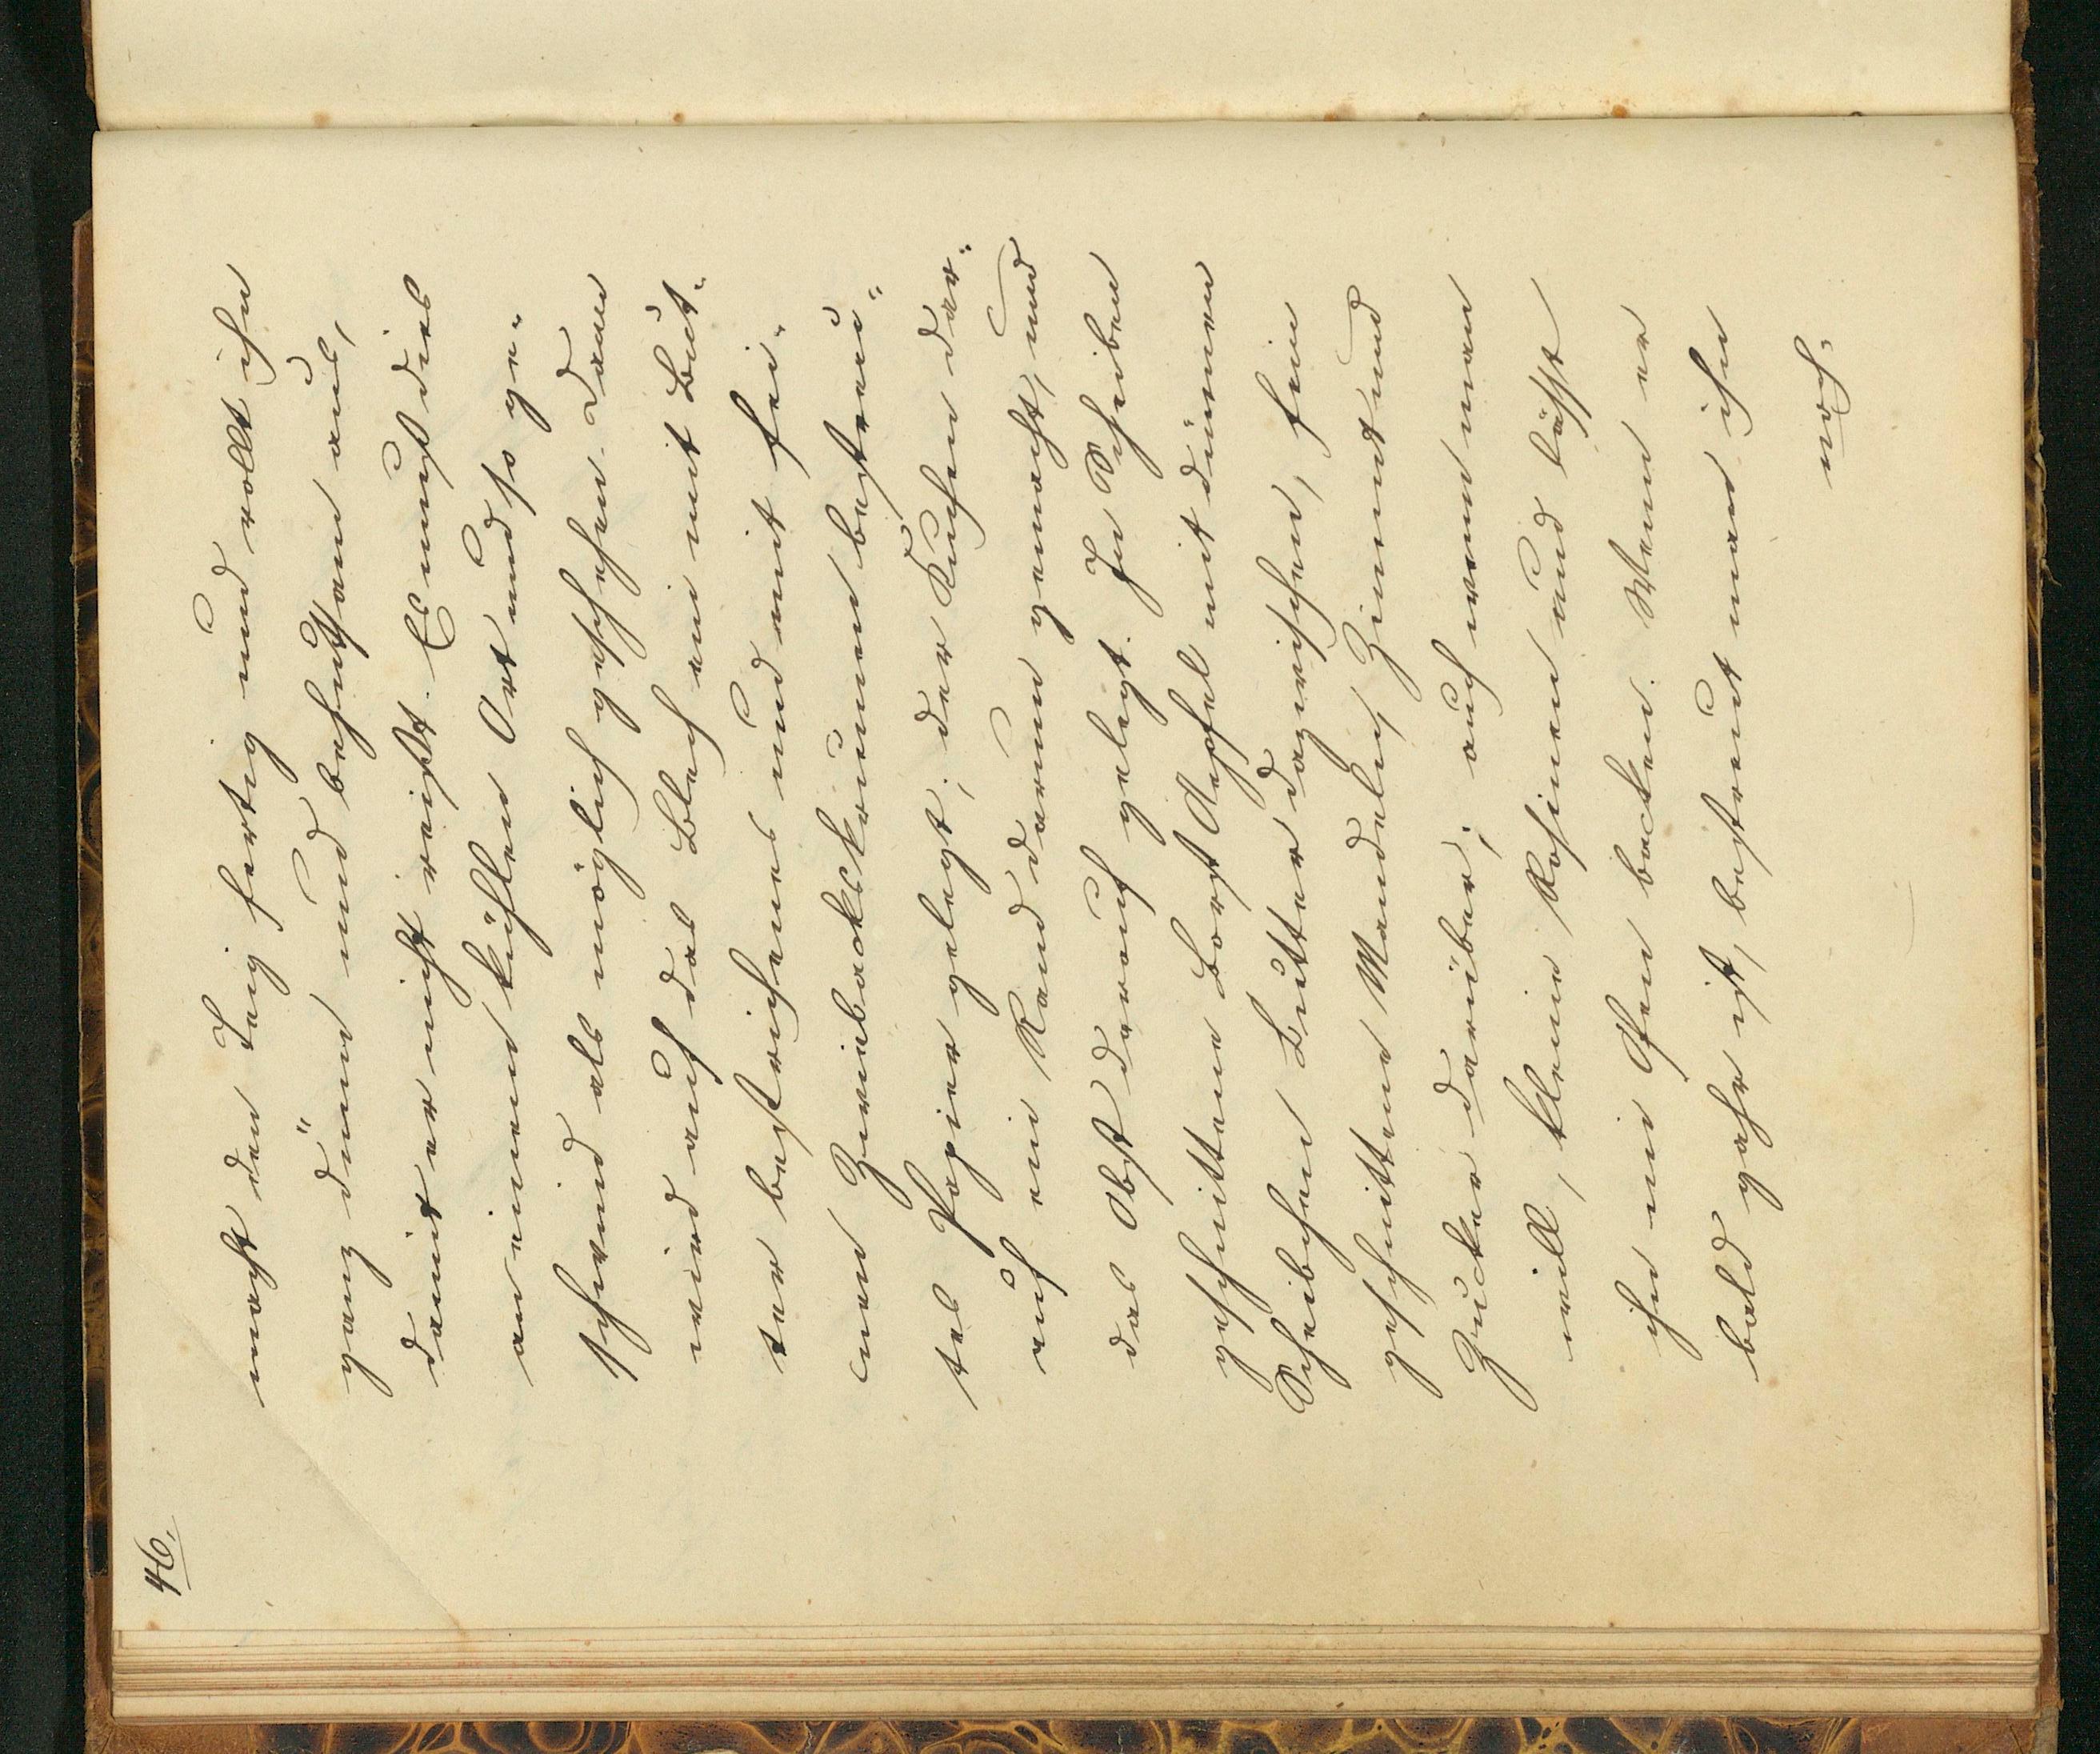 46.
macht den Teig fertig und rollt ihn
ganz dünn und behutsam aus,
damit er nicht reißt. Es muß dies
an einem kühlen Ort und so ge-
schwind als möglich geschehen. Dann
wird auf das Blech ein mit But-
ter bestrichenes und mit fei-
nen Zwiebackskrumen bestreu-
tes Papier gelegt; der Kuchen dar-
auf ein Rand darum gemacht, und
das Obst darauf gelegt. In Scheiben
geschnittene Borst Aepfel mit dünnen
Scheibchen Butter dazwischen, fein
geschnittene Mandeln, Zimmt und
Zucker darüber; auch wenn man
will, kleine Rosinen und läßt
ihn im Ofen backen. Wenn er
bald gahr ist, bestreut man ihn
noch